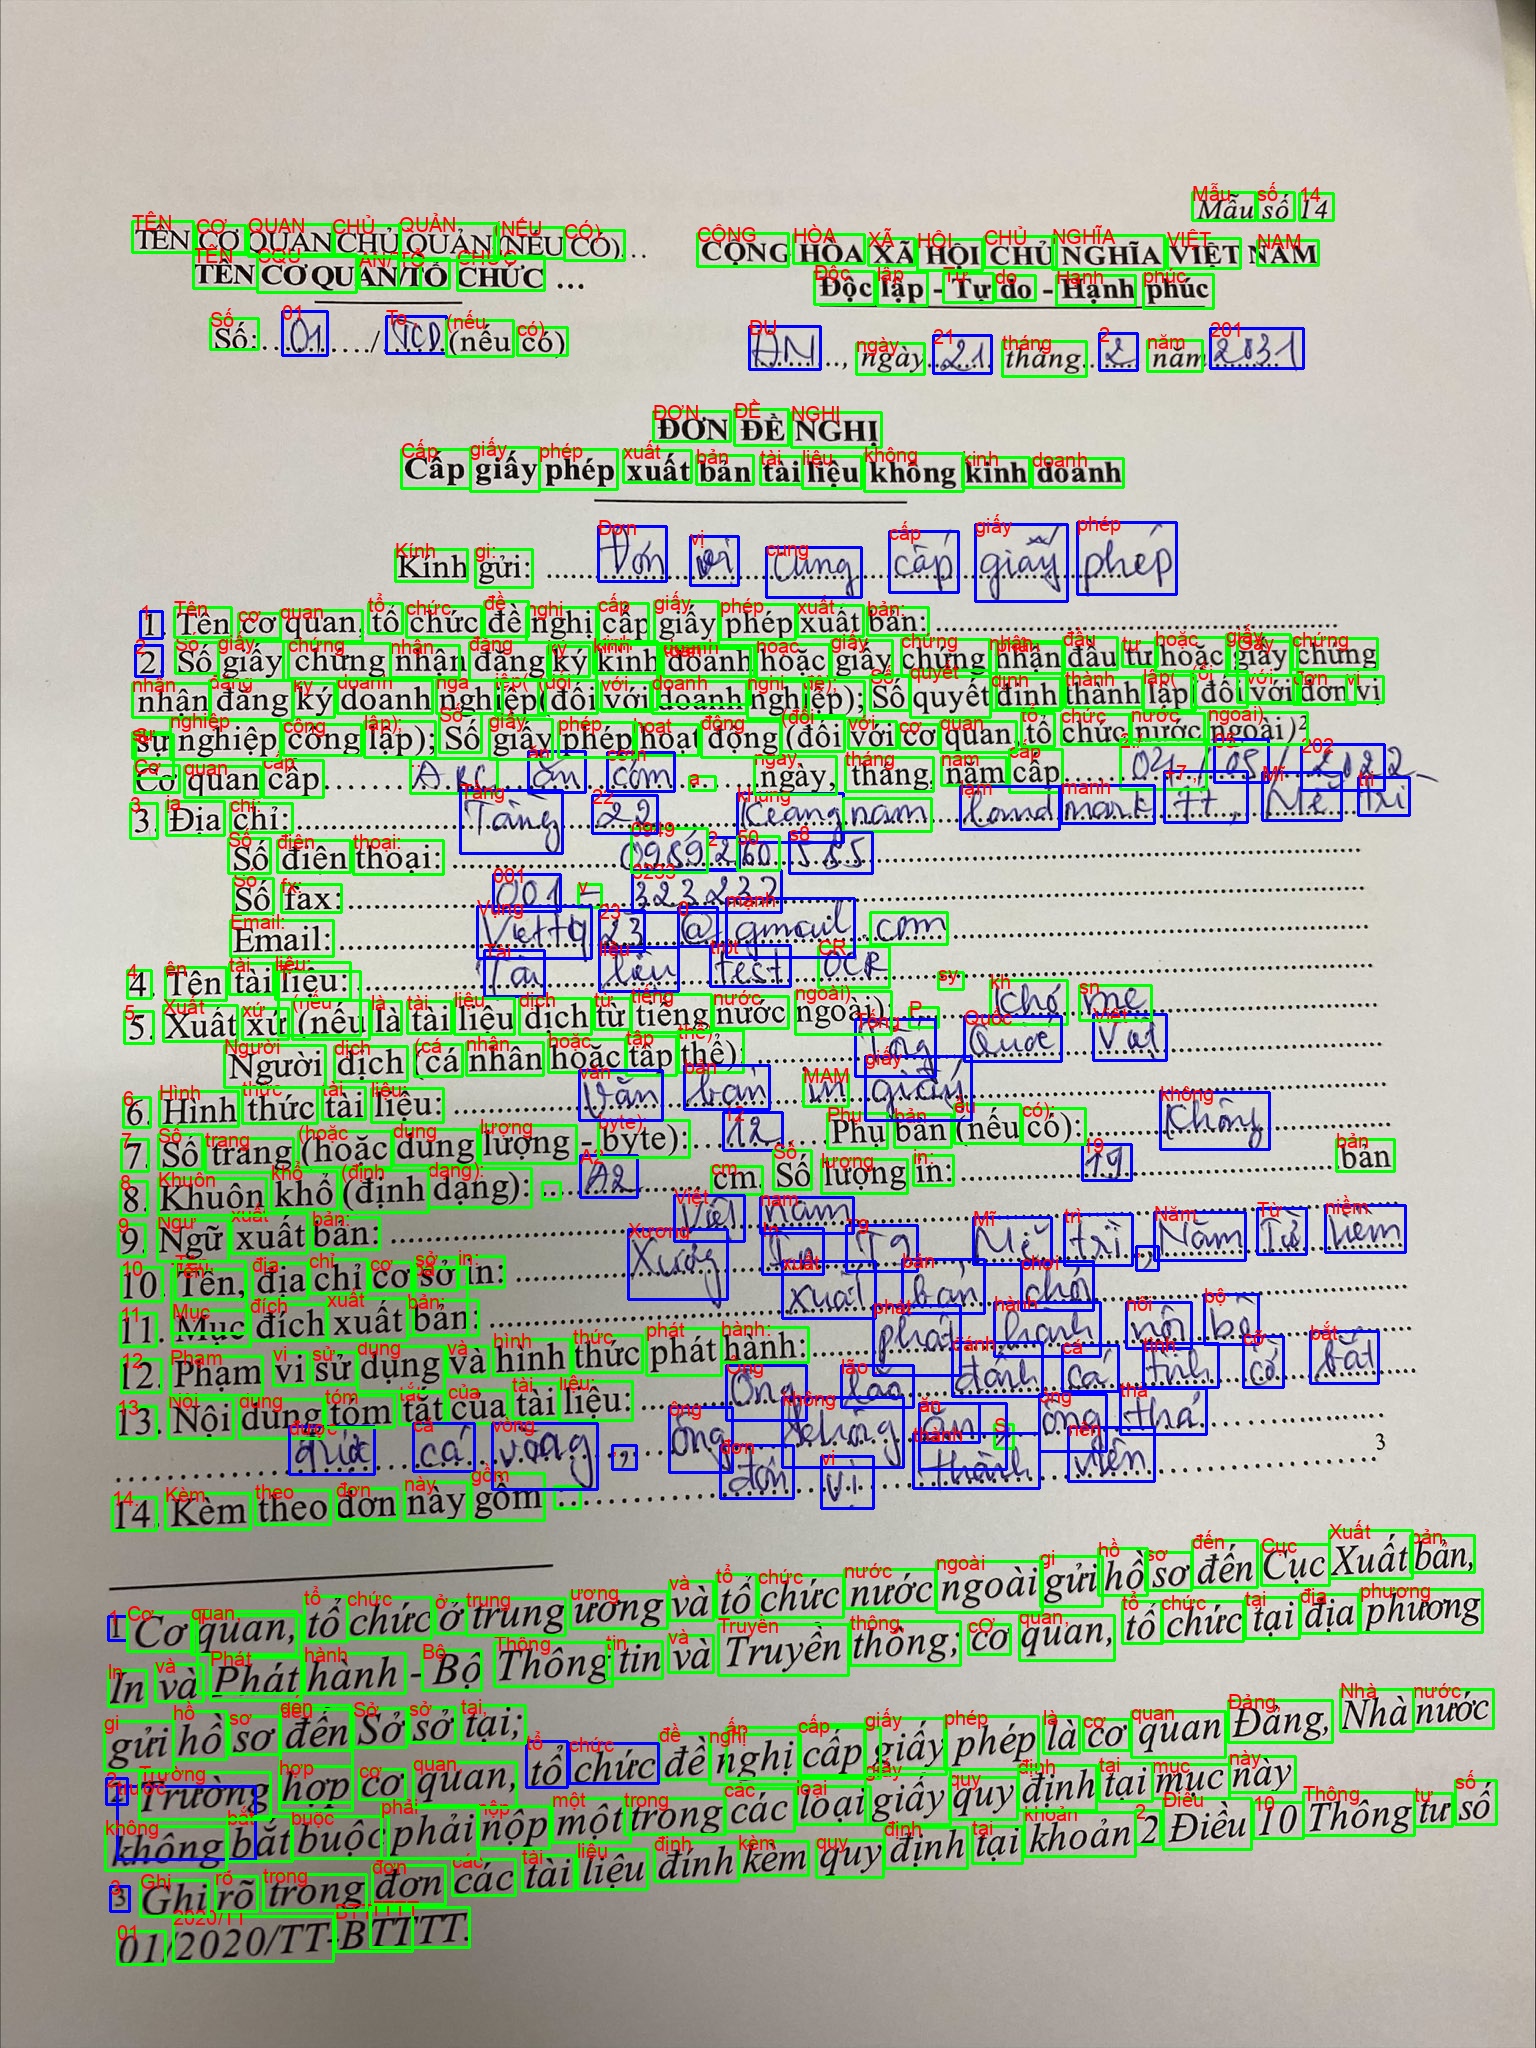 Mẫu số 14
TÊN CƠ QUAN CHỦ QUẢN (NẾU CÓ)…
TÊN CƠ QUAN/TỔ CHỨC …
CỘNG HÒA XÃ HỘI CHỦ NGHĨA VIỆT NAM
Độc lập - Tự do - Hạnh phúc
Số: ...01....../ VCD (nếu có)
HN..., ngày 21 tháng 2 năm 2031
ĐƠN ĐỀ NGHỊ
Cấp giấy phép xuất bản tài liệu không kinh doanh
Kính gửi: Đơn vị cung cấp giấy phép
1. Tên cơ quan, tổ chức đề nghị cấp giấy phép xuất bản:
2. Số giấy chứng nhận đăng ký kinh doanh hoặc giấy chứng nhận đầu tư hoặc giấy chứng
nhận đăng ký doanh nghiệp(đối với doanh nghiệp); Số quyết định thành lập (đối với đơn vị
sự nghiệp công lập); Số giấy phép hoạt động (đối với cơ quan, tổ chức nước ngoài)²
Cơ quan cấp....... ABC ăn cơm ...... ngày, tháng, năm cấp...... 04 / 05 / 2022
3. Địa chỉ: Tầng 22 Keangnam landmark tt, Mễ trì
Số điện thoại: 0989 260 585
Số fax: 001 - 323.232
Email: Vietty23@gmail.com
4. Tên tài liệu: Tài liệu test OCR
5. Xuất xứ (nếu là tài liệu dịch từ tiếng nước ngoài): khó mẹ
Người dịch (cá nhân hoặc tập thể): Tống Quốc Vat
6. Hình thức tài liệu: Văn bản in giấy
7. Số trang (hoặc dung lượng - byte):...12...... Phụ bản (nếu có): Không
8. Khuôn khổ (định dạng): ... A2 ...... cm. Số lượng in: 19 bản
9. Ngữ xuất bản: Việt nam
10. Tên, địa chỉ cơ sở in: Xưởng In Tg Mễ trì, Nam Từ liem
11. Mục đích xuất bản: xuất bản chơi
12. Phạm vi sử dụng và hình thức phát hành: phát hành nội bộ
13. Nội dung tóm tắt của tài liệu: Ông lão đánh cá tình cờ bắt
được cá vàng, ông không ăn, ông thả ³
14. Kèm theo đơn này gồm ... đơn vị thành viên
1 Cơ quan, tổ chức ở trung ương và tổ chức nước ngoài gửi hồ sơ đến Cục Xuất bản,
In và Phát hành - Bộ Thông tin và Truyền thông; cơ quan, tổ chức tại địa phương
gửi hồ sơ đến Sở sở tại;
2 Trường hợp cơ quan, tổ chức đề nghị cấp giấy phép là cơ quan Đảng, Nhà nước
không bắt buộc phải nộp một trong các loại giấy quy định tại mục này
3 Ghi rõ trong đơn các tài liệu đính kèm quy định tại khoản 2 Điều 10 Thông tư số
01/2020/TT-BTTTT.